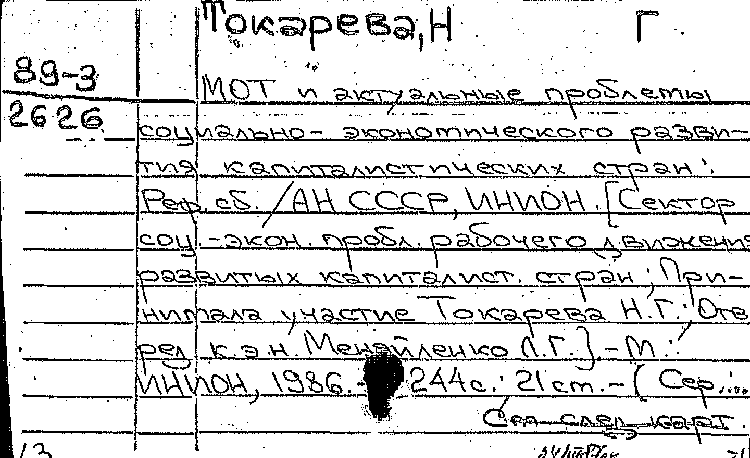 Токарева, Н Г
89-3
2626
МОТ и актуальные проблемы
социально-экономического разви-
тия капиталистических стран:
Реф. сб. / АН СССР, ИНИОН. [Сектор
соц.-экон. пробл. рабочего движения
развитых капиталист. стран; При-
нимала участие Токарева Н.Г.; Отв.
ред. к.э.н. Менайленко Л.Г.]. - М.:
ИНИОН, 1986. - 244с.: 21см. - (Сер.:
См. след. карт.
13